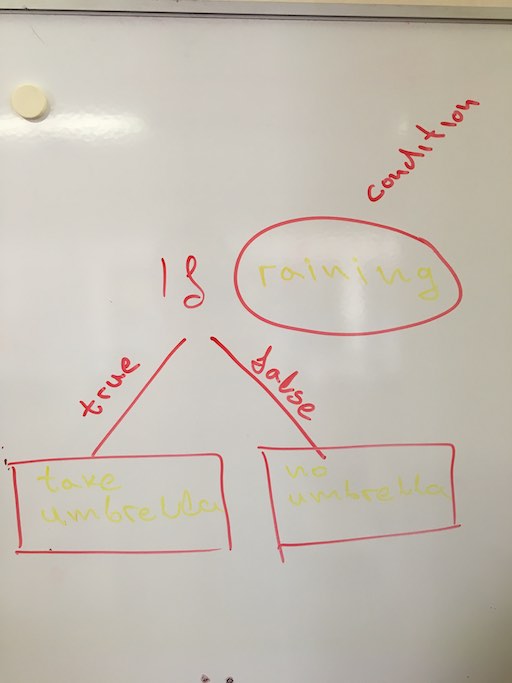 condition
If raining
true false
take
umbrella
no
umbrella